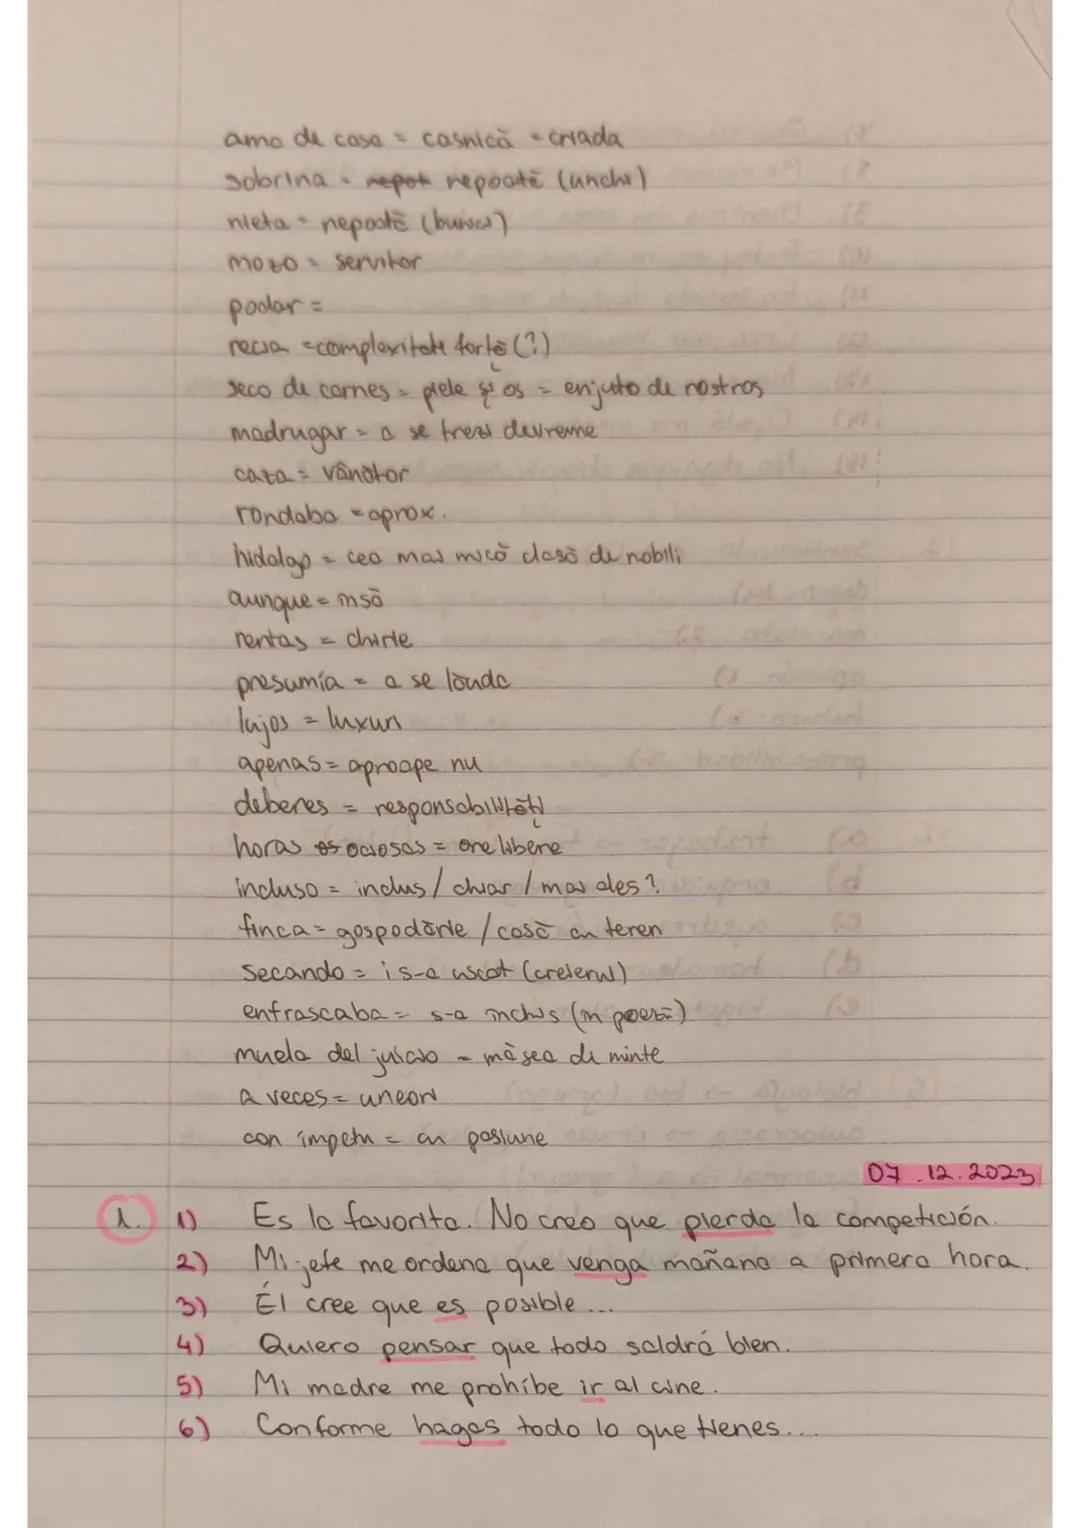 ama de casa = casnică = criada
sobrina = nepot nepoată (unchi)
nieta = nepoată (bunici)
mozo = servitor
podar =
recia = complexitate forte (?)
seco de carnes = piele și os = enjuto de rostros
madrugar = a se trezi devreme
caza = vânător
rondaba = aprox.
hidalgo = cea mai mică clasă de nobili
aunque = însă
rentas = chirie
presumía = a se lăuda
lujos = luxuri
apenas = aproape nu
deberes = responsabilități
horas os ociosas = ore libere
incluso = inclus / chiar / mai ales?
finca = gospodărie / casă cu teren
secando = i s-a uscat (creierul)
enfrascaba = s-a închis (în poezii)
muela del juicio = măsea de minte
a veces = uneori
con ímpetu = cu pasiune
07.12.2023
1. 1) Es la favorita. No creo que pierda la competición.
2) Mi jefe me ordena que venga mañana a primera hora.
3) Él cree que es posible...
4) Quiero pensar que todo saldrá bien.
5) Mi madre me prohíbe ir al cine.
6) Conforme hagas todo lo que tienes...